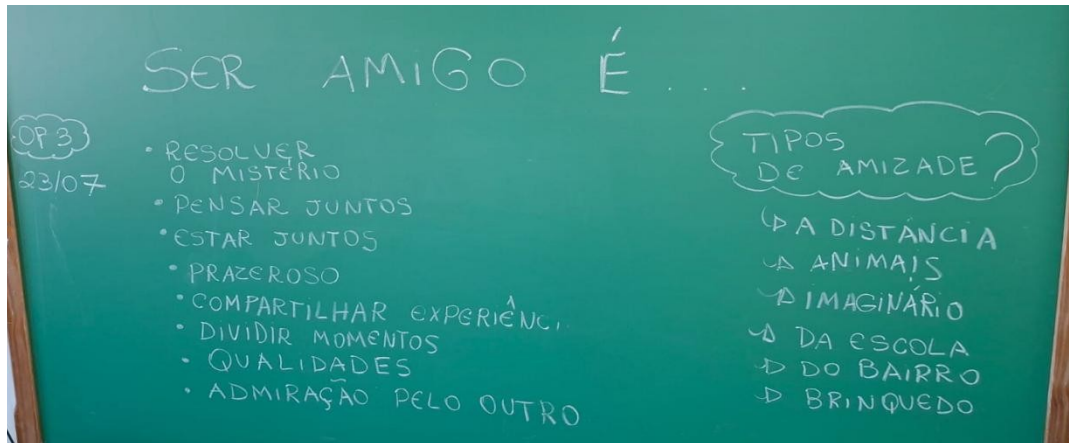 SER AMIGO É ...
OP 3
23/07
• RESOLVER
O MISTÉRIO
• PENSAR JUNTOS
• ESTAR JUNTOS
• PRAZEROSO
• COMPARTILHAR
• DIVIDIR MOMENTOS
• QUALIDADES
• ADMIRAÇÃO PELO OUTRO
TIPOS
DE AMIZADE ?
↳ A DISTÂNCIA
↳ ANIMAIS
↳ IMAGINÁRIO
↳ DA ESCOLA
↳ DO BAIRRO
↳ BRINQUEDO